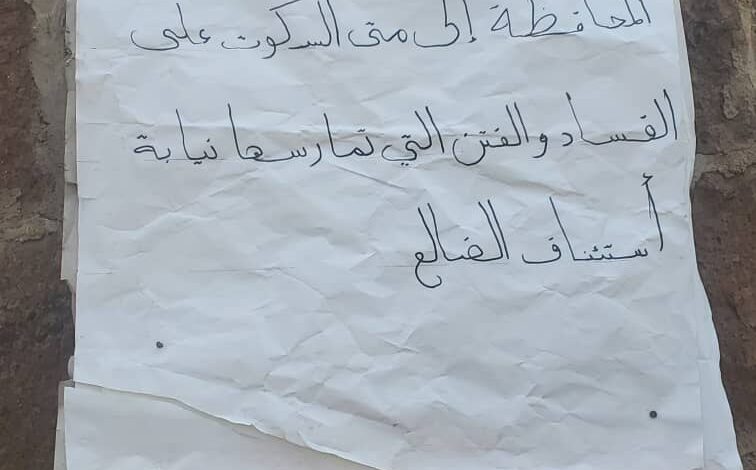 المحافظة إلى متى السكوت على
الفساد والفتن التي تمارسها نيابة
أستئناف الضالع